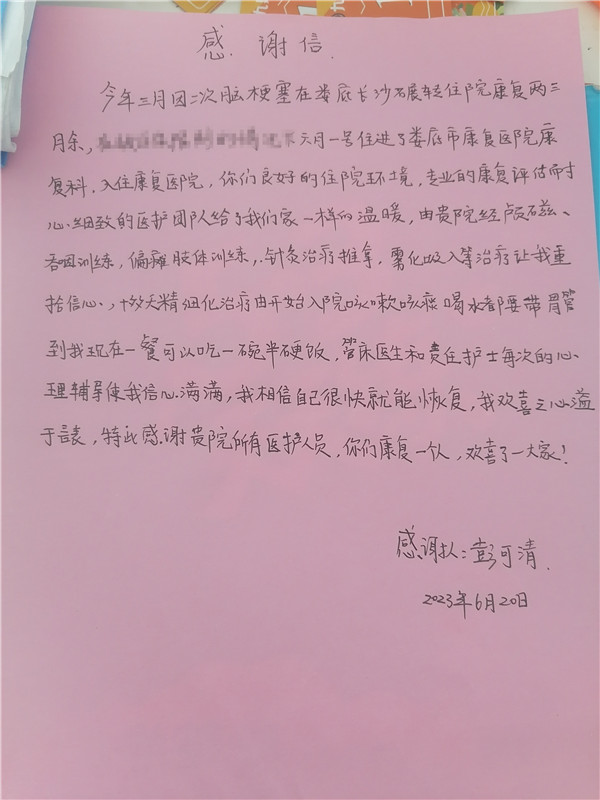 感谢信
今年三月因二次脑梗塞在娄底长沙辗转住院康复两三
月余，六月一号住进了娄底市康复医院康
复科，入住康复医院，你们良好的住院环境，专业的康复评估而才
心细致的医护团队给了我们家一样的温暖，由贵院经颅磁、
吞咽训练，偏瘫肢体训练，针灸治疗推拿，雾化吸入等治疗让我重
拾信心、十数天精细化治疗由开始入院咳嗽咳痰喝水都要带胃管
到我现在一餐可以吃一碗半硬饭，管床医生和责任护士每次的心
理辅导使我信心满满，我相信自己很快就能恢复，我欢喜之心溢
于言表，特此感谢贵院所有医护人员，你们康复一个人，欢喜了一大家！
感谢人：彭可清
2023年6月20日